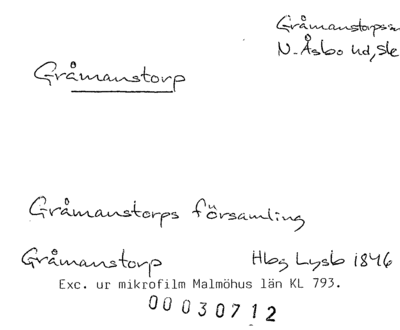 Gråmanstorps
N. Åsbo hd, Sk
Gråmanstorp
Gråmanstorps församling
Gråmanstorp Hbg Lysb 1846
Exc. ur mikrofilm Malmöhus län KL 793.
00030712